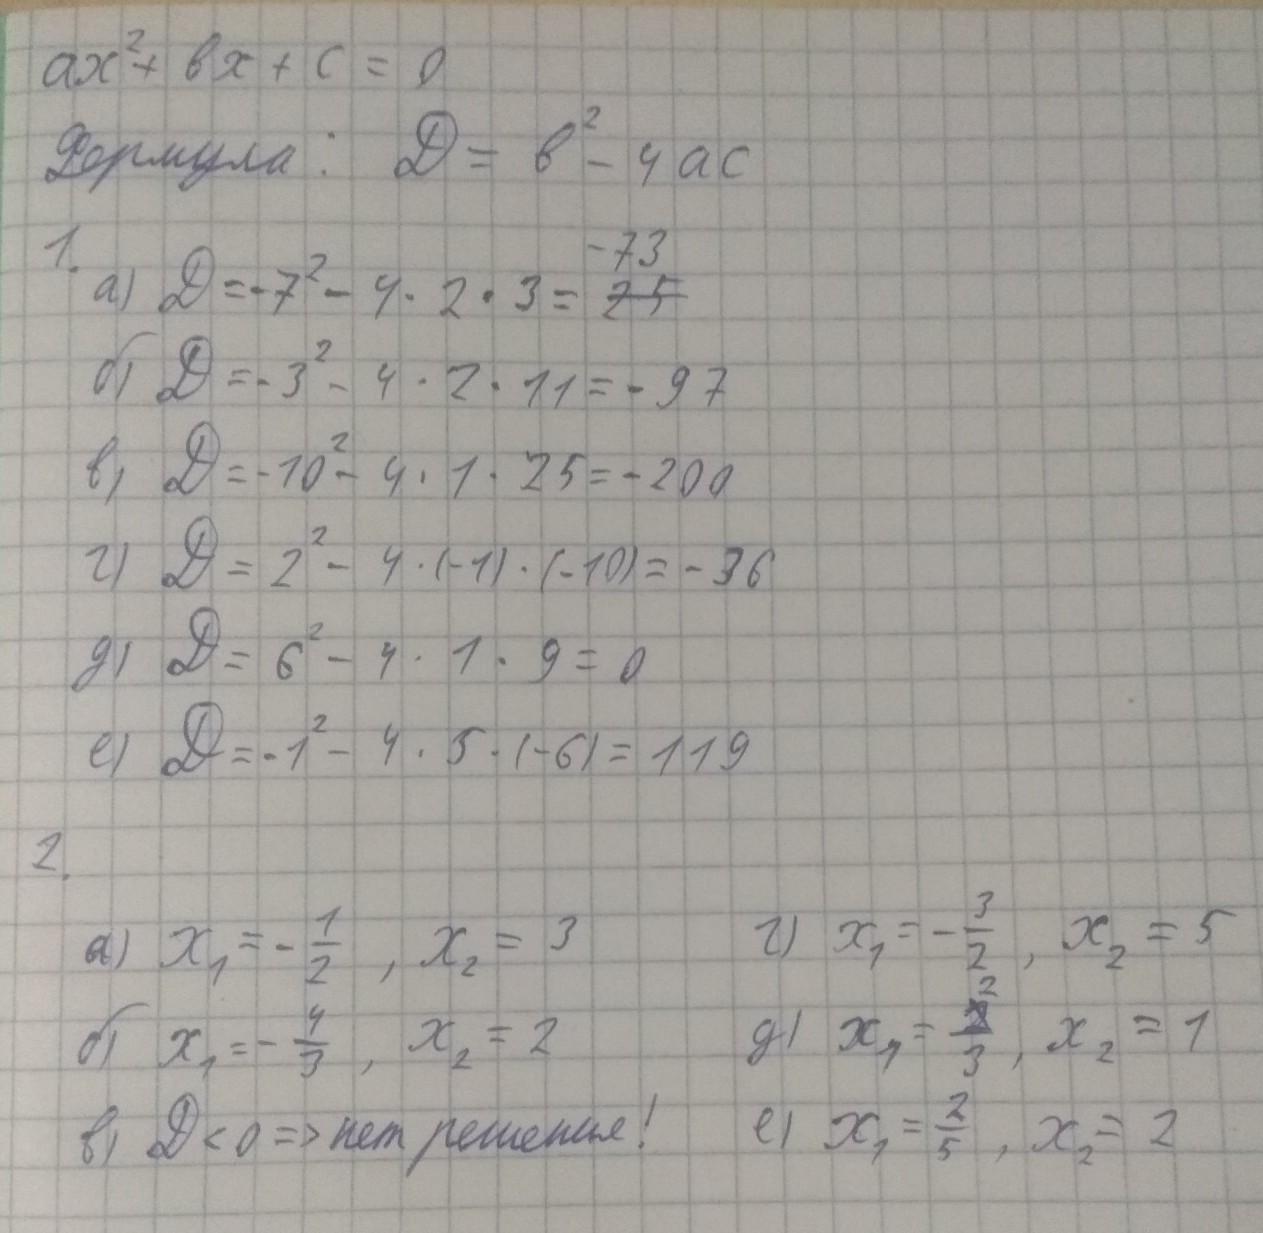 ax² + bx + c = 0
Формула: D = b² - 4ac
1.
а) D = -7² - 4 · 2 · 3 = 25 -73
б) D = -3² - 4 · 2 · 11 = -97
в) D = -10² - 4 · 1 · 25 = -200
г) D = 2² - 4 · (-1) · (-10) = -36
д) D = 6² - 4 · 1 · 9 = 0
е) D = -1² - 4 · 5 · (-6) = 119
2.
а) x₁ = -1/2, x₂ = 3
б) x₁ = -4/3, x₂ = 2
в) D < 0 => нет решения!
г) x₁ = -3/2, x₂ = 5
д) x₁ = 2/3, x₂ = 1
е) x₁ = 2/5, x₂ = 2